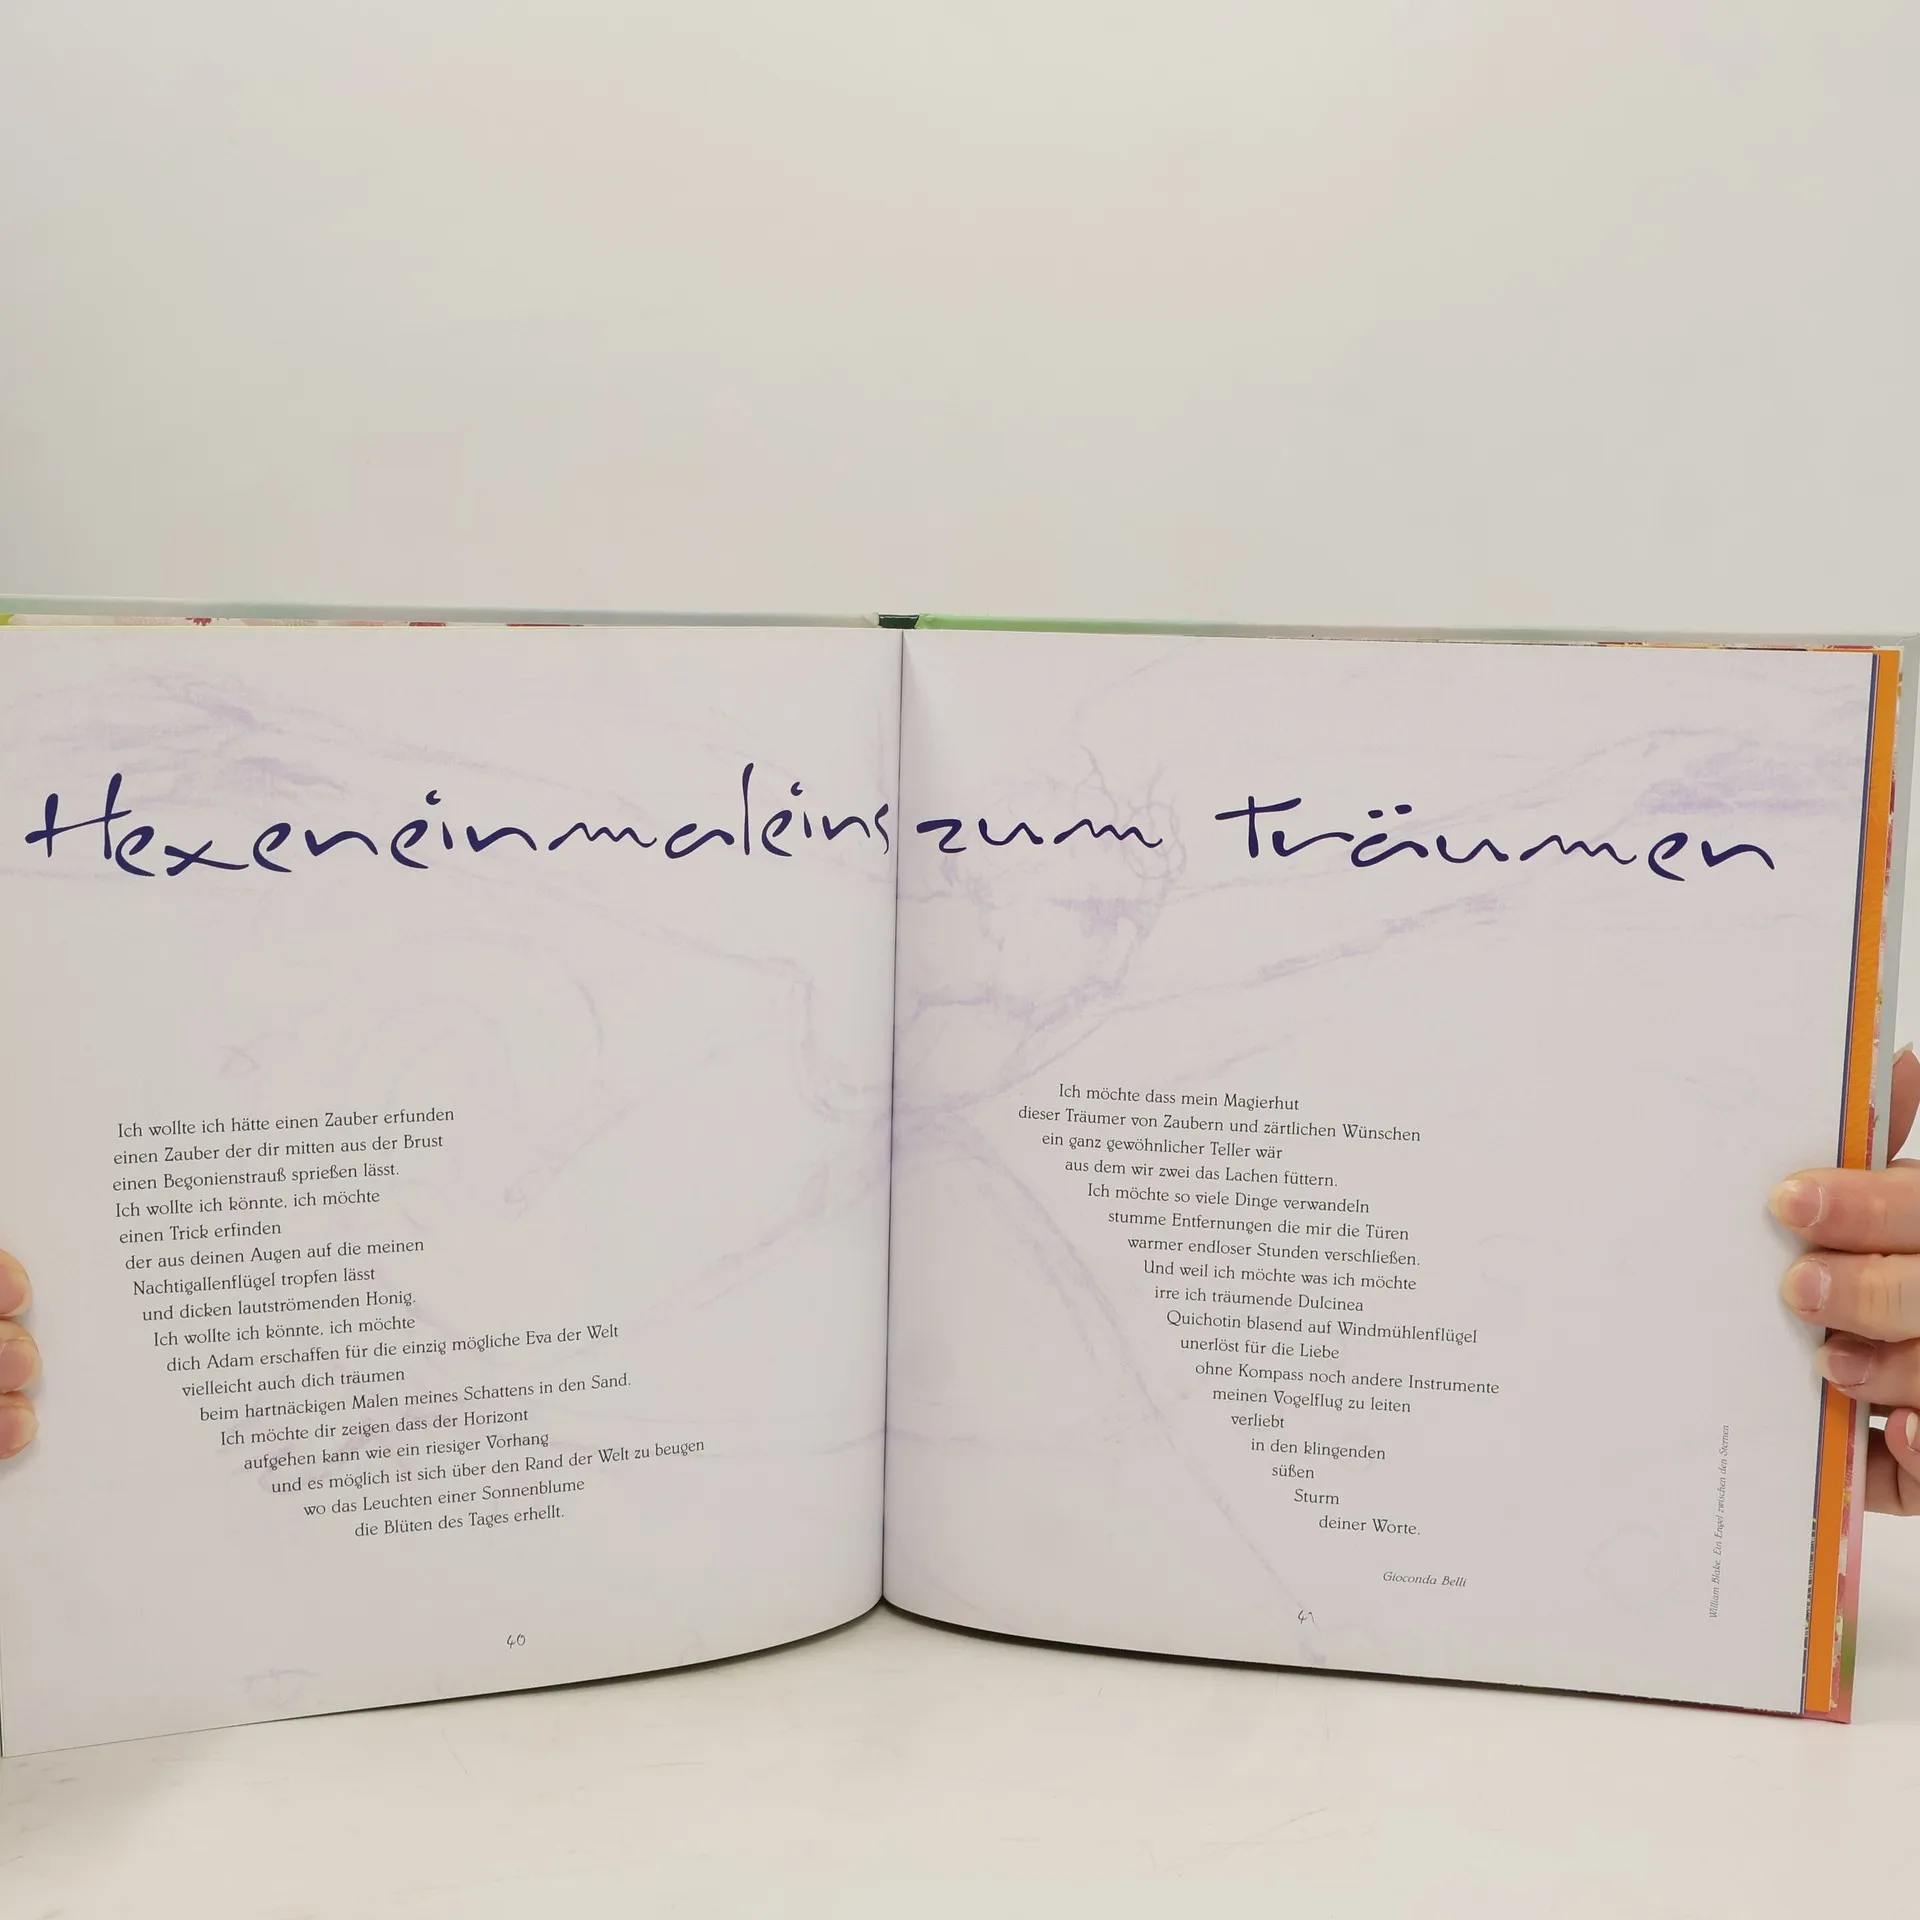 Hexeneinmaleins zum Träumen
Ich wollte ich hätte einen Zauber erfunden
einen Zauber der dir mitten aus der Brust
einen Begonienstrauß sprießen lässt.
Ich wollte ich könnte, ich möchte
einen Trick erfinden
der aus deinen Augen auf die meinen
Nachtigallenflügel tropfen lässt
und dicken lautströmenden Honig.
Ich wollte ich könnte, ich möchte
dich Adam erschaffen für die einzig mögliche Eva der Welt
vielleicht auch dich träumen
beim hartnäckigen Malen meines Schattens in den Sand.
Ich möchte dir zeigen dass der Horizont
aufgehen kann wie ein riesiger Vorhang
und es möglich ist sich über den Rand der Welt zu beugen
wo das Leuchten einer Sonnenblume
die Blüten des Tages erhellt.
40
Ich möchte dass mein Magierhut
dieser Träumer von Zaubern und zärtlichen Wünschen
ein ganz gewöhnlicher Teller wär
aus dem wir zwei das Lachen füttern.
Ich möchte so viele Dinge verwandeln
stumme Entfernungen die mir die Türen
warmer endloser Stunden verschließen.
Und weil ich möchte was ich möchte
irre ich träumende Dulcinea
Quichotin blasend auf Windmühlenflügel
unerlöst für die Liebe
ohne Kompass noch andere Instrumente
meinen Vogelflug zu leiten
verliebt
in den klingenden
süßen
Sturm
deiner Worte.
Gioconda Belli
41
William Blake, Ein Engel zwischen den Sternen